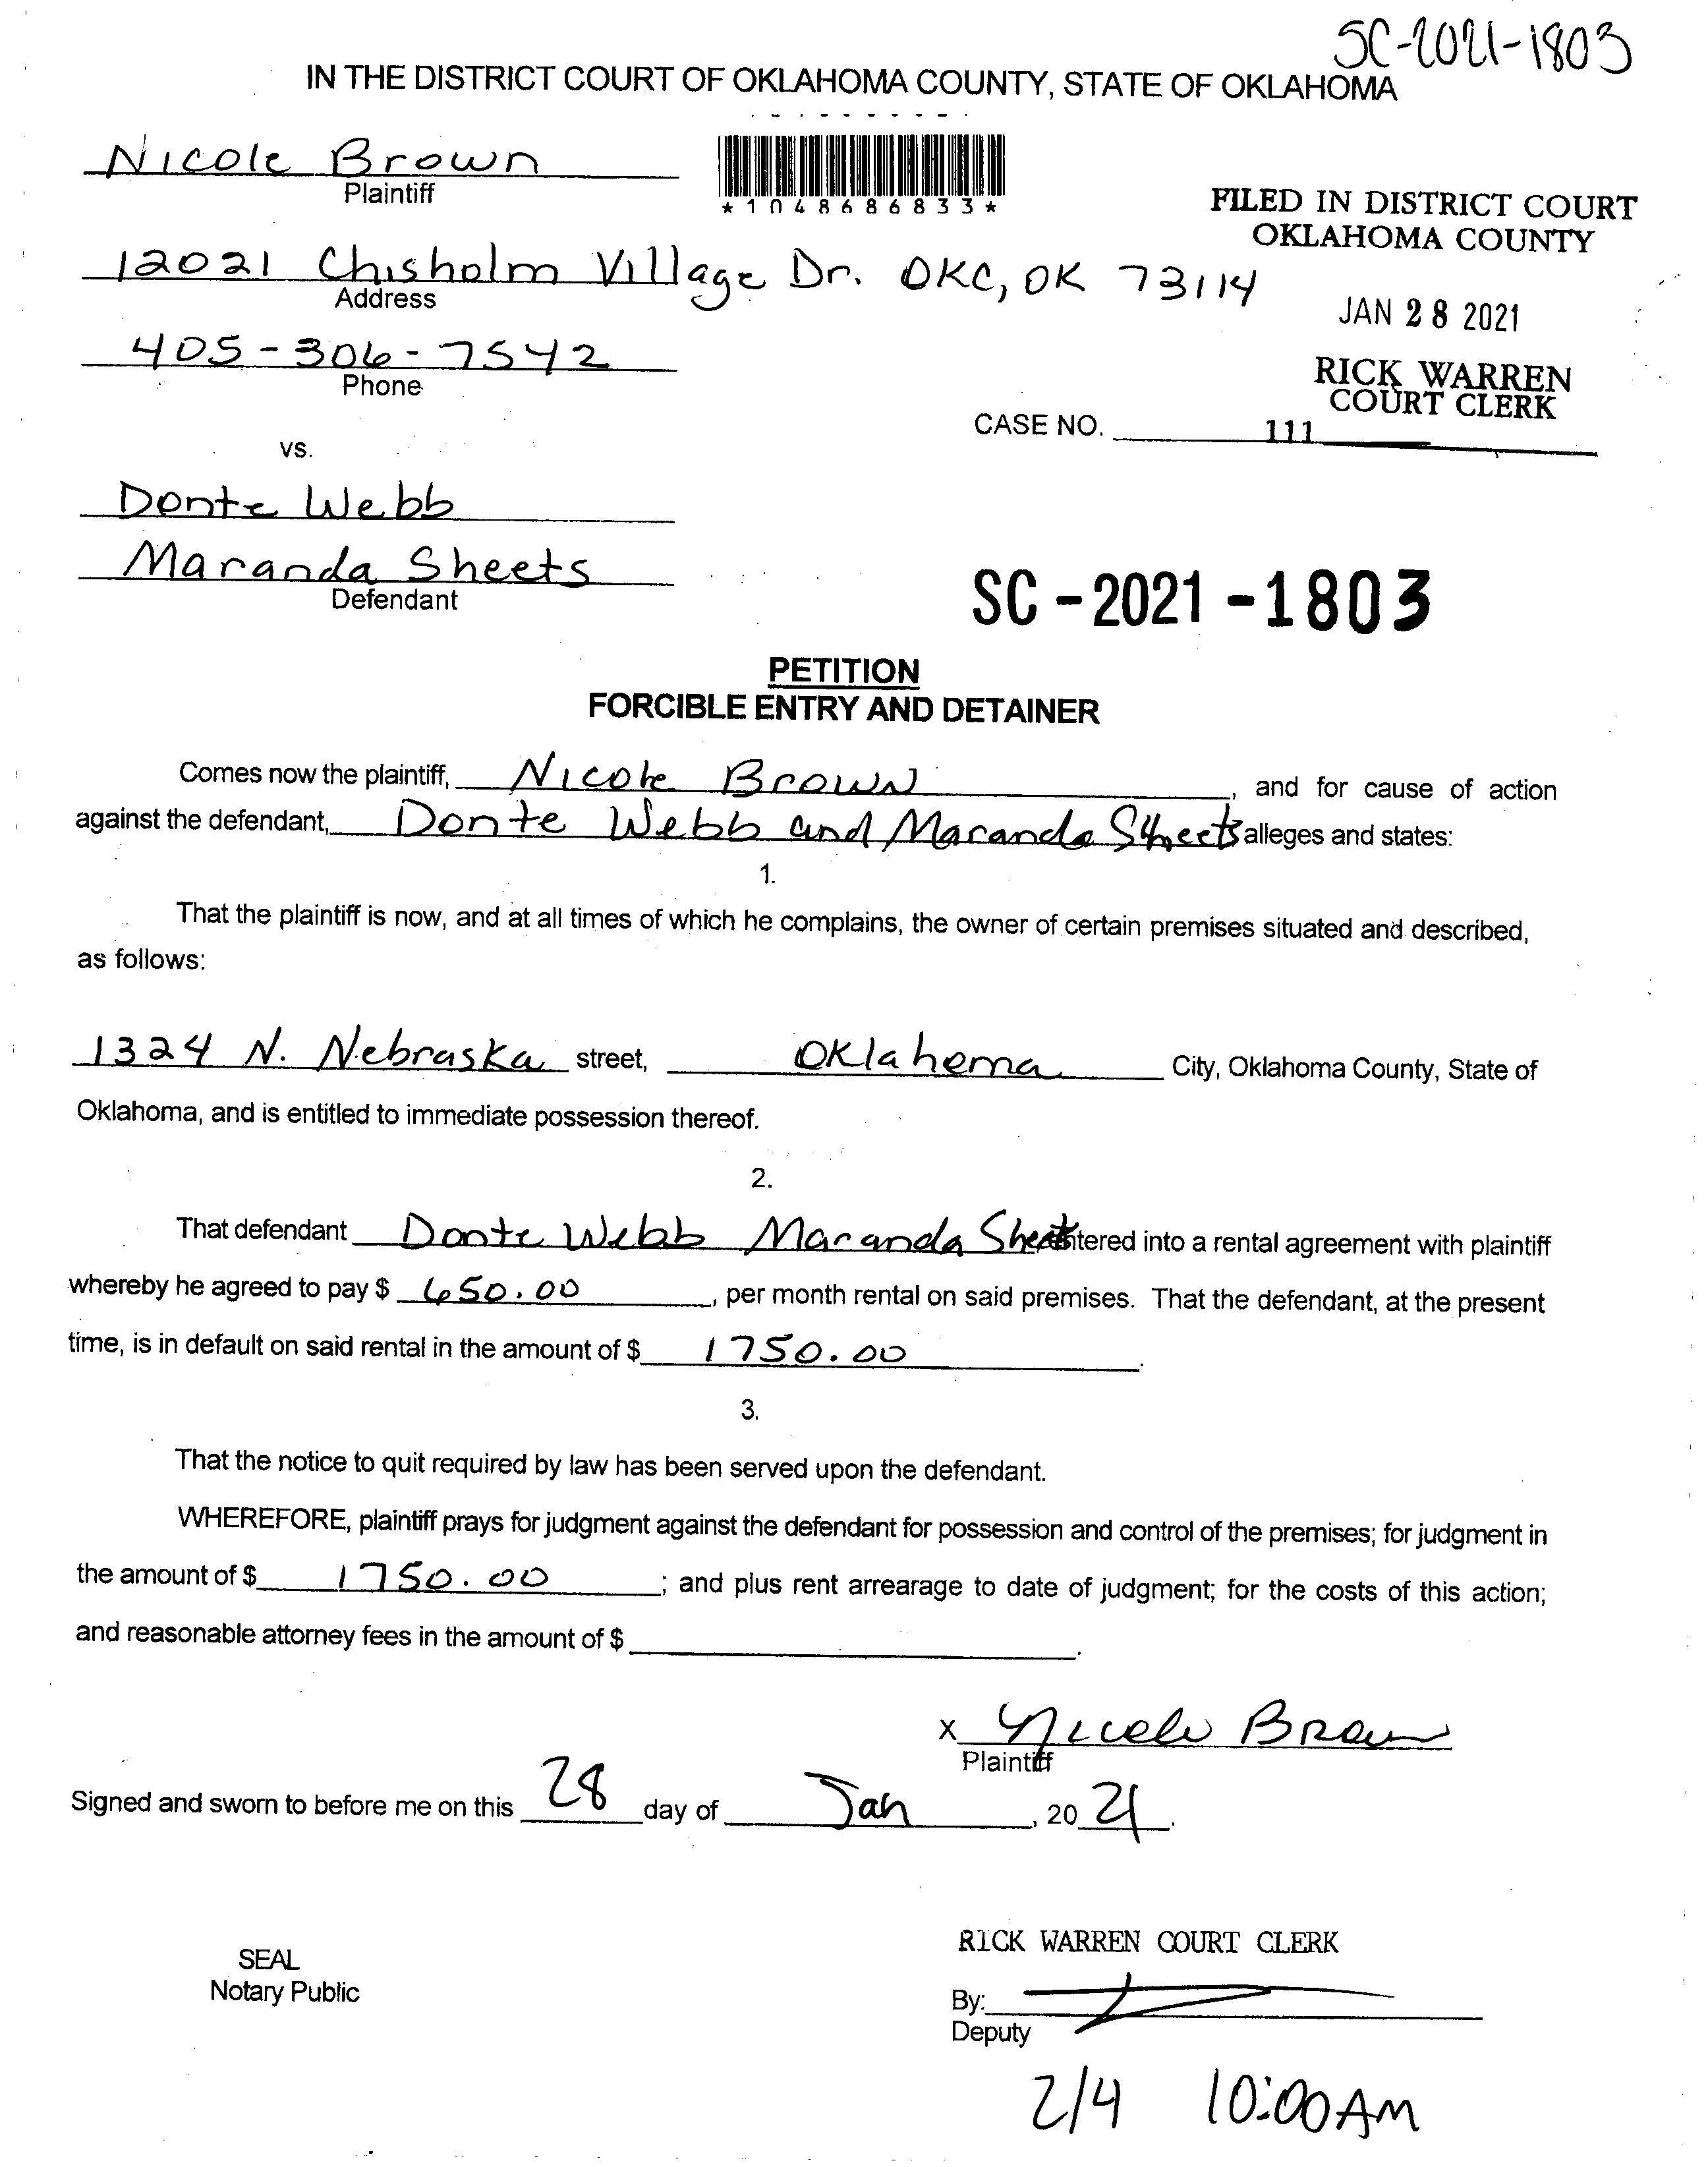 SC-2021-1803
IN THE DISTRICT COURT OF OKLAHOMA COUNTY, STATE OF OKLAHOMA
Nicole Brown
Plaintiff
*1048686833*
FILED IN DISTRICT COURT
OKLAHOMA COUNTY
12021 Chisholm Village Dr. OKC, OK 73114
Address
JAN 28 2021
405-306-7542
Phone
RICK WARREN
COURT CLERK
CASE NO. 111
vs.
Donte Webb
Maranda Sheets
Defendant
SC-2021-1803
PETITION
FORCIBLE ENTRY AND DETAINER
Comes now the plaintiff, Nicole Brown, and for cause of action
against the defendant, Donte Webb and Maranda Sheets alleges and states:
1.
That the plaintiff is now, and at all times of which he complains, the owner of certain premises situated and described,
as follows:
1324 N. Nebraska street, Oklahoma City, Oklahoma County, State of
Oklahoma, and is entitled to immediate possession thereof.
2.
That defendant Donte Webb Maranda Sheets entered into a rental agreement with plaintiff
whereby he agreed to pay $ 650.00, per month rental on said premises. That the defendant, at the present
time, is in default on said rental in the amount of $ 1750.00.
3.
That the notice to quit required by law has been served upon the defendant.
WHEREFORE, plaintiff prays for judgment against the defendant for possession and control of the premises; for judgment in
the amount of $ 1750.00; and plus rent arrearage to date of judgment; for the costs of this action;
and reasonable attorney fees in the amount of $ .
x Nicole Brown
Plaintiff
Signed and sworn to before me on this 28 day of Jan, 2021.
RICK WARREN COURT CLERK
SEAL
Notary Public
By:
Deputy
2/4 10:00AM